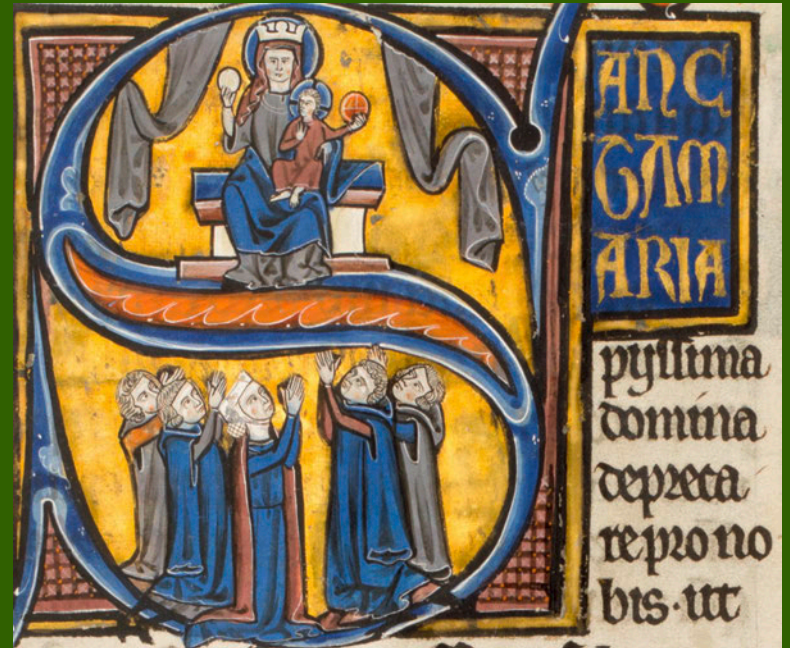 SANC
TAM
ARIA
piissima
domina
depreca
re pro no
bis·ut